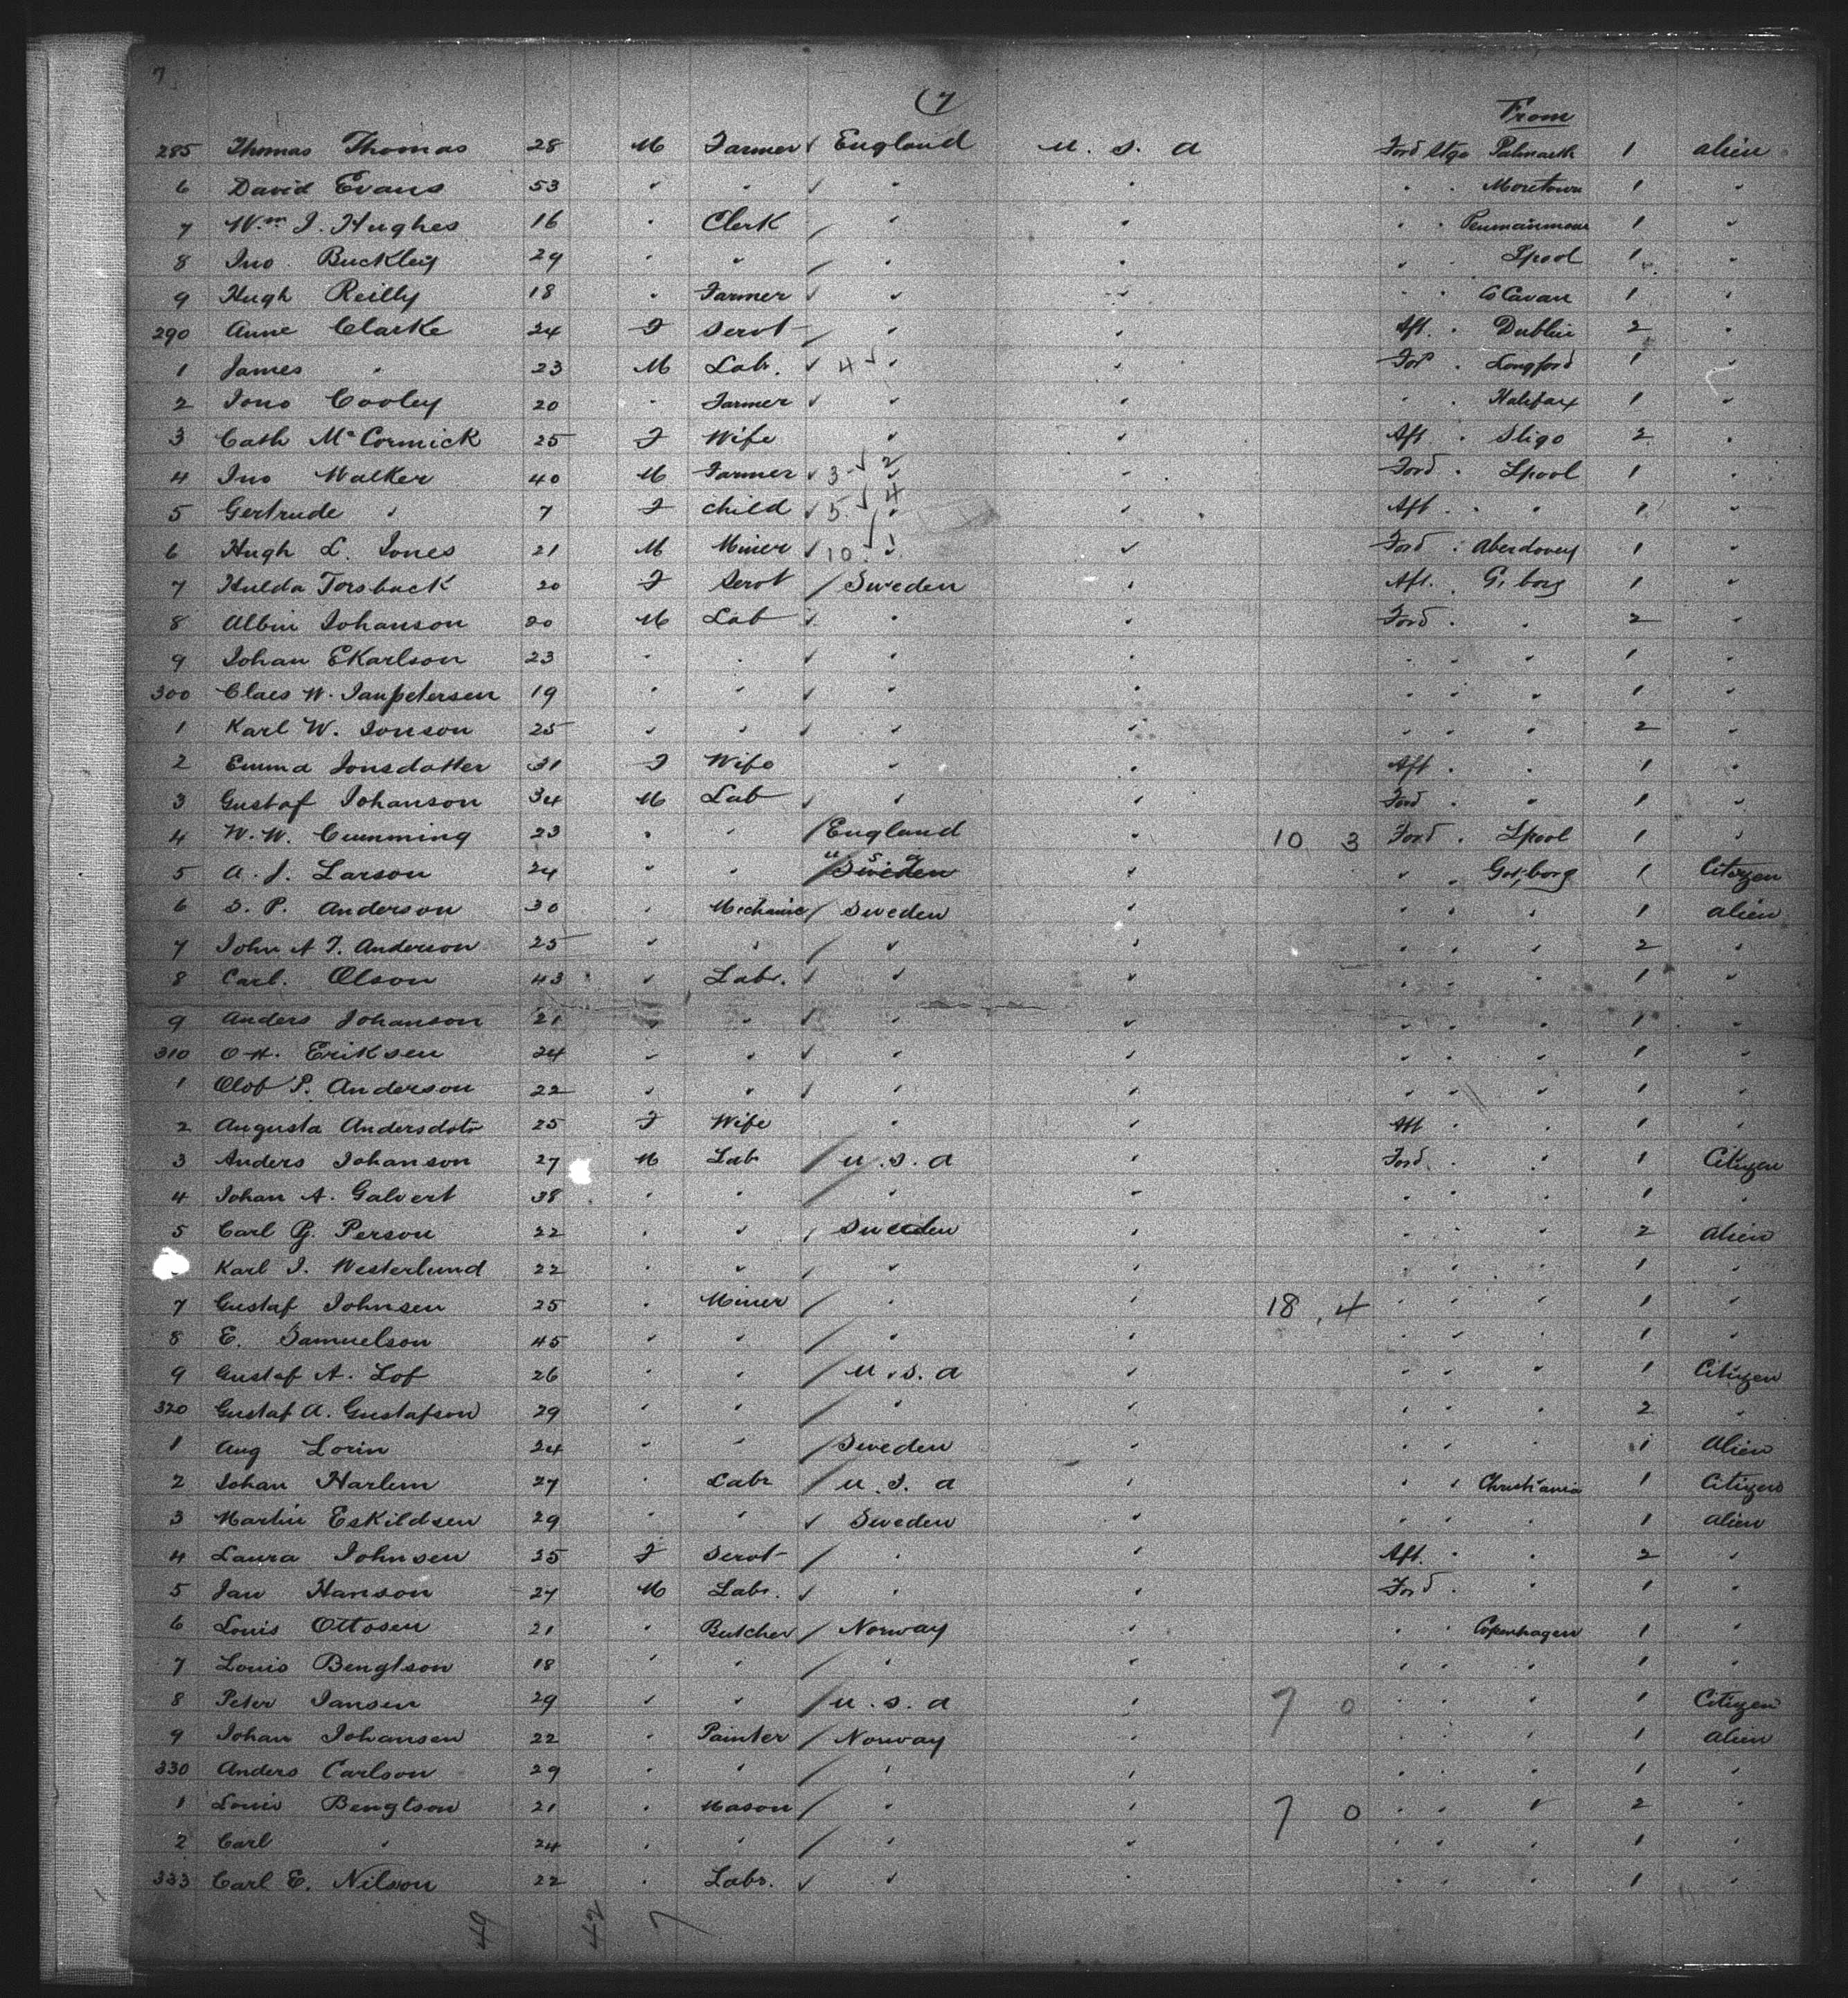 7
(7
From
285 Thomas Thomas 28 M Farmer ✓ England U. S. A Ford Stge 1 alien
6 David Evans 53 " " ✓ " " " " Moretown 1 "
7 Wm J. Hughes 16 " Clerk / " " " " 1 "
8 Jno Buckley 29 " " / " " " " Lpool 1 "
9 Hugh Reilly 18 " Farmer ✓ " " " " Co Cavan 1 "
290 Anne Clarke 24 F Servt / " " Aft. " Dublin 2 "
1 James " 23 M Lab. ✓ 4 ✓ " " For " Longford 1 "
2 Jono Cooley 20 " Farmer ✓ " " " " Halifax 1 "
3 Cath McCormick 25 F Wife " " Aft. " Sligo 2 "
4 Jno Walker 40 M Farmer ✓ 3 ✓ 2 " " Ford " Lpool 1 "
5 Gertrude " 7 F child ✓ 5 ✓ 4 " " Aft " " 1 "
6 Hugh L. Jones 21 M Miner ✓ 10 ✓ 1 " " Ford " Aberdovey 1 "
7 Hulda Torsback 20 F Servt / Sweden " Aft. G. borg 1 "
8 Albin Johanson 20 M Lab ✓ " " Ford " " 2 "
9 Johan EKarlson 23 " " ✓ " " " " " 1 "
300 Claes W. Janpetersen 19 " " ✓ " " " " " 1 "
1 Karl W. Jonson 25 " " ✓ " " " " " 2 "
2 Emma Jonsdotter 31 F Wife " " Aft " " 1 "
3 Gustaf Johanson 34 M Lab ✓ " " Ford " " 1 "
4 W. W. Cumming 23 " " / England " 10 3 Ford " Lpool 1 "
5 A. J. Larson 24 " " / U S A Sweden " " " Got,borg 1 Citizen
6 S. P. Anderson 30 " Mechanic / Sweden " " " " 1 alien
7 John A T. Anderson 25 " " / " " " " " 2 "
8 Carl. Olson 43 " Labr. ✓ " " " " " 1 "
9 Anders Johanson 21 " " ✓ " " " " " 1 "
310 O H. Eriksen 24 " " ✓ " " " " " 1 "
1 Olof P. Anderson 22 " " ✓ " " " " " 1 "
2 Augusta Andersdotr 25 F Wife " " Aft " " 1 "
3 Anders Johanson 27 M Lab / U. S. A " Ford " " 1 Citizen
4 Johan A. Galvert 38 " " / " " " " " 1 "
5 Carl G. Person 22 " " / Sweden " " " " 2 alien
Karl J. Westerlund 22 " " / " " " " " 1 "
7 Gustaf Johnsen 25 " Miner / " " 18 . 4 " " " 1 "
8 E. Samuelson 45 " " / " " " " " 1 "
9 Gustaf A. Lof 26 " " / U. S. A " " " " 1 Citizen
320 Gustaf A. Gustafson 29 " " / " " " " " 2 "
1 Aug Lorin 24 " " / Sweden " " " " 1 Alien
2 Johan Harlem 27 " Labr / U. S. A " " " Christiania 1 Citizen
3 Martin Eskildsen 29 " " ✓ Sweden " " " " 1 alien
4 Laura Johnsen 25 F Servt / " " Aft. " " 2 "
5 Jan Hanson 27 M Labr. ✓ " " Ford " " 1 "
6 Louis Ottosen 21 " Butcher / Norway " " " Copenhagen 1 "
7 Louis Bengtson 18 " " / " " " " " 1 "
8 Peter Jansen 29 " " / U. S. A " 7 0 " " " 1 Citizen
9 Johan Johansen 22 " Painter / Norway " " " " 1 alien
330 Anders Carlson 29 " " / " " " " " 1 "
1 Louis Bengtson 21 " Mason / " " 7 0 " " " 2 "
2 Carl " 24 " " / " " " " " 1 "
333 Carl E. Nilson 22 " Labr. ✓ " " " " " 1 "
49 42 7